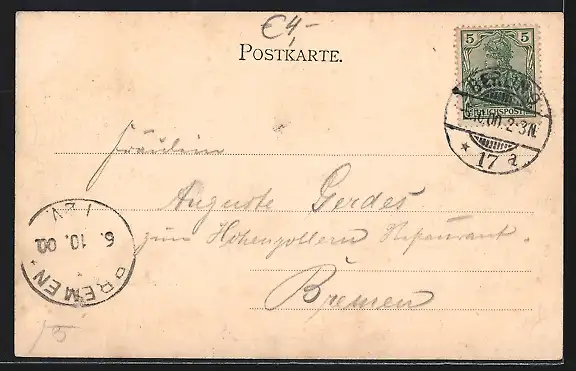 €4,-
POSTKARTE.
5 5
REICHSPOST
BERLIN
.00. 2-3N.
* 17 a
Fräulein
Auguste Gerdes
zum Hohenzollern Restaurant.
Bremen
BREMEN
1 * V.
6. 10. 00
15